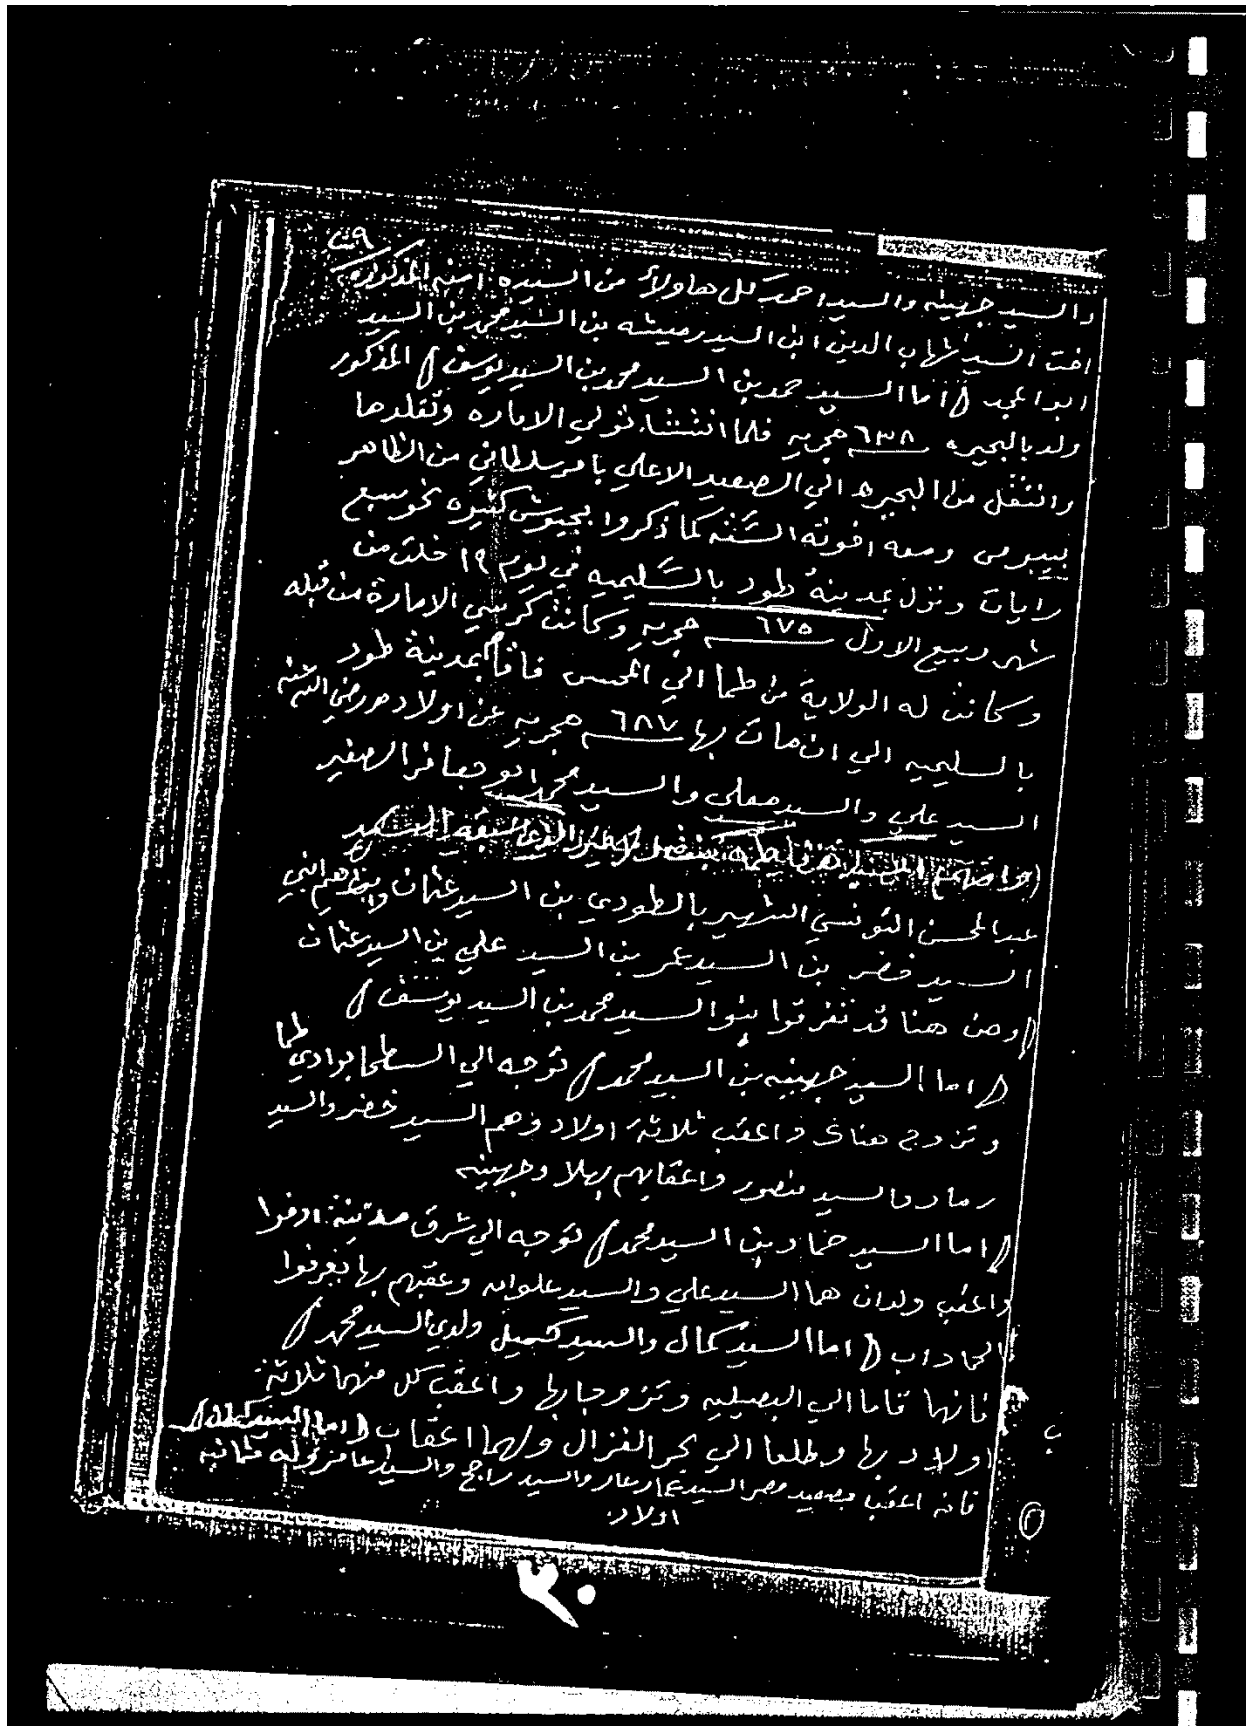 والسيد جهينه والسيد احمد كل هاولاء من السيده امنه المذكوره
اخت السيد شهاب الدين ابن السيد رميثه بن السيد محمد بن السيد
ابوا اما السيد حمد بن السيد محمد بن السيد يوسف المذكور
ولد بالبحيره ٦٣٨ هجريه فلما انتشا تولي الاماره وتقلدها
وانتقل من البحيره الي الصعيد الاعلي بامر سلطاني من الظاهر
بيبرس ومعه اخوته الستة كما ذكروا بجيوش كثيره نحو سبع
رايات ونزل بمدينة طود بالسليميه في يوم ١٩ خلت من
شهر ربيع الاول ٦٧٥ هجريه وكانت كرسي الامارة من قبله
وكانت له الولاية من طما الي المحس فاقام بمدينة طود
بالسليميه الي ان مات بها ٦٨٧ هجريه عن اولاده رضي الله عنه
السيد علي والسيد معلي والسيد محمد ابو جعافر الصغير
عبد المحسن التونسي الشهير بالطودي بن السيد عثمان
السيد خضر بن السيد عمر بن السيد علي بن السيد عثمان
ومن هنا قد تفرقوا بنوا السيد محمد بن السيد يوسف
اما السيد جهينه بن السيد محمد توجه الي السطحا بوادي طما
وتزوج هناك واعقب ثلاثة اولاد وهم السيد خضر والسيد
رماد والسيد منصور واعقابهم بهلا وجهينه
اما السيد حماد بن السيد محمد توجه الي شرق مدينة ادفوا
واعقب ولدان هما السيد علي والسيد علوان وعقبهم بها يعرفوا
الحماداب اما السيد كمال والسيد كميل ولدي السيد محمد
فانهما قاما الي البصيليه وتزوجا بها واعقب كل منهما ثلاثة
اولاد بها وطلعا الي بحر الغزال ولهما اعقاب اما السيد
فانه اعقب بصعيد مصر السيد والسيد راجح والسيد عامر وله ثمانيه
اولاد
٣٠